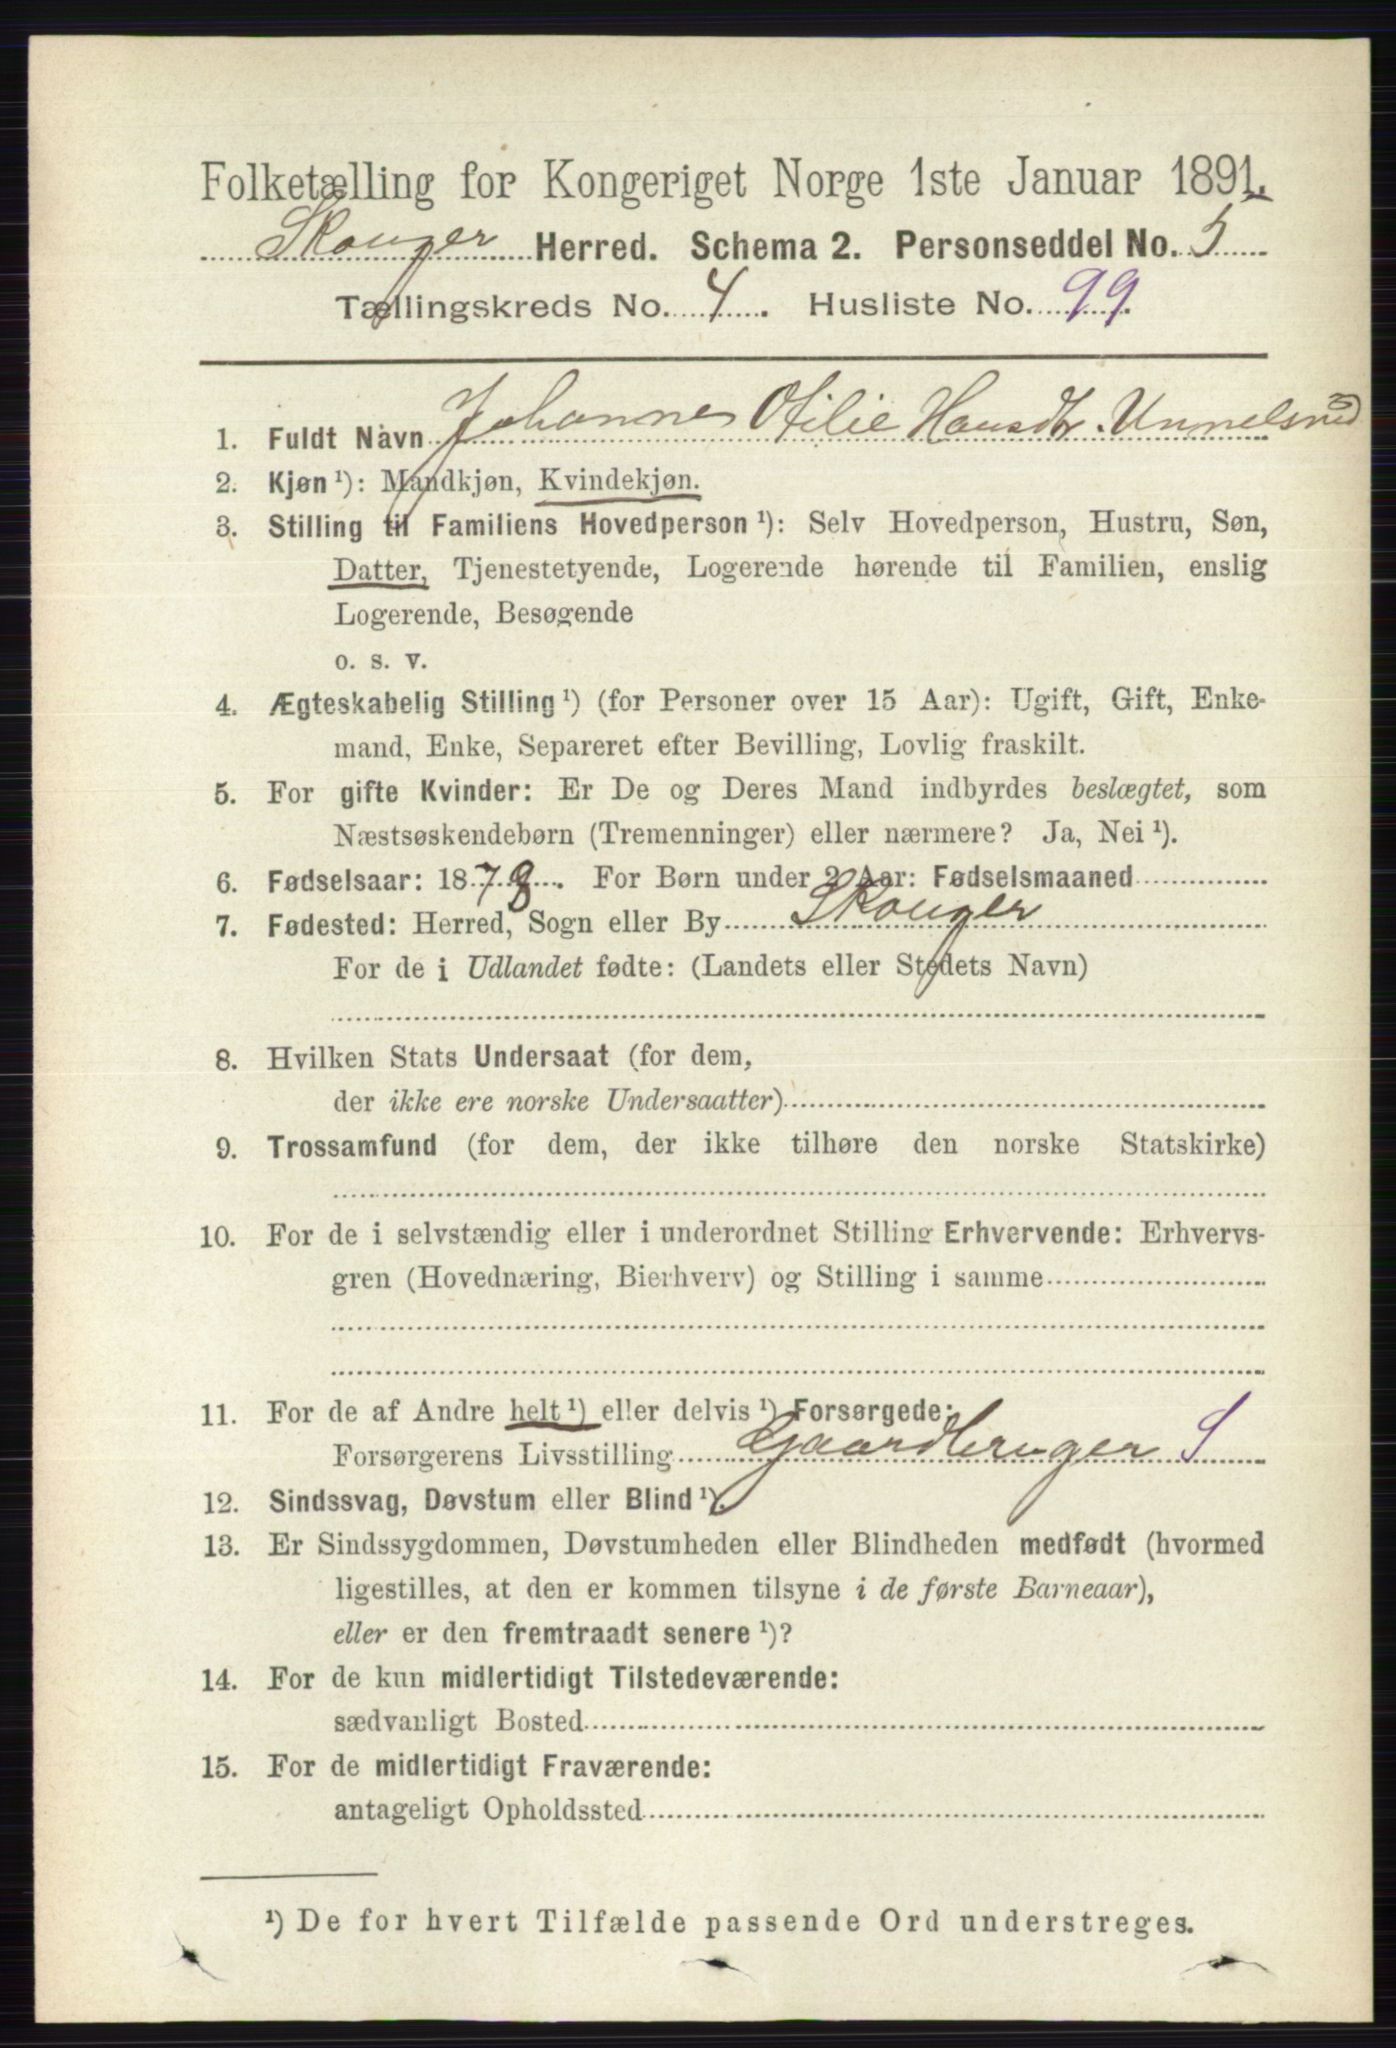 Folketælling for Kongeriget Norge 1ste Januar 1891.
Skouger Herred. Schema 2. Personseddel No. 5
Tællingskreds No. 4. Husliste No. 99.
1. Fuldt Navn Johanne Otilie Hansdtr. Unnelsrud
2. Kjøn ¹): Mandkjøn, Kvindekjøn.
3. Stilling til Familiens Hovedperson ¹): Selv Hovedperson, Hustru, Søn,
Datter, Tjenestetyende, Logerende hørende til Familien, enslig
Logerende, Besøgende
o. s. v.
4. Ægteskabelig Stilling ¹) (for Personer over 15 Aar): Ugift, Gift, Enke-
mand, Enke, Separeret efter Bevilling, Lovlig fraskilt.
5. For gifte Kvinder: Er De og Deres Mand indbyrdes beslægtet, som
Næstsøskendebørn (Tremenninger) eller nærmere? Ja, Nei ¹).
6. Fødselsaar: 1878. For Børn under 2 Aar: Fødselsmaaned
7. Fødested: Herred, Sogn eller By Skouger
For de i Udlandet fødte: (Landets eller Stedets Navn)
8. Hvilken Stats Undersaat (for dem,
der ikke ere norske Undersaatter)
9. Trossamfund (for dem, der ikke tilhøre den norske Statskirke)
10. For de i selvstændig eller i underordnet Stilling Erhvervende: Erhvervs-
gren (Hovednæring, Bierhverv) og Stilling i samme
11. For de af Andre helt ¹) eller delvis ¹) Forsørgede:
Forsørgerens Livsstilling Gaardbruger S
12. Sindssvag, Døvstum eller Blind ¹).
13. Er Sindssygdommen, Døvstumheden eller Blindheden medfødt (hvormed
ligestilles, at den er kommen tilsyne i de første Barneaar),
eller er den fremtraadt senere ¹)?
14. For de kun midlertidigt Tilstedeværende:
sædvanligt Bosted
15. For de midlertidigt Fraværende:
antageligt Opholdssted
¹) De for hvert Tilfælde passende Ord understreges.